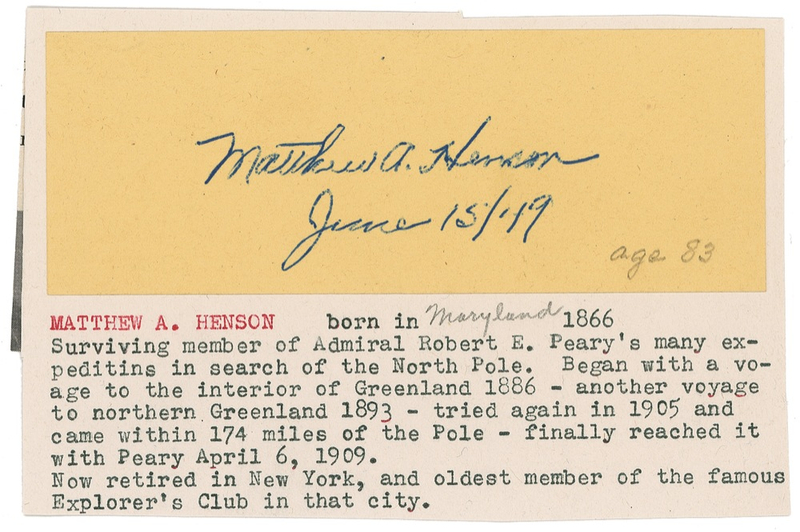 Matthew A. Henson
June 15/49
age 83
MATTHEW A. HENSON born in Maryland 1866
Surviving member of Admiral Robert E. Peary's many ex-
peditins in search of the North Pole. Began with a vo-
age to the interior of Greenland 1886 - another voyage
to northern Greenland 1893 - tried again in 1905 and
came within 174 miles of the Pole - finally reached it
with Peary April 6, 1909.
Now retired in New York, and oldest member of the famous
Explorer's Club in that city.